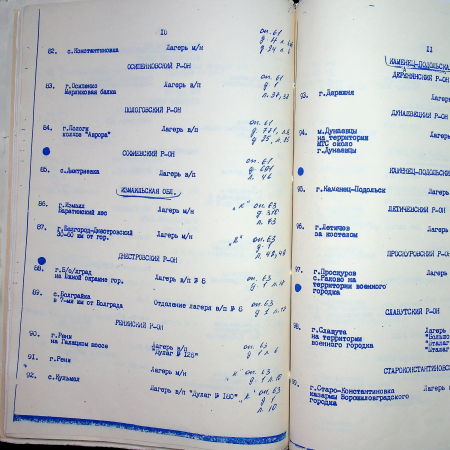 10
82. с.Константиновка Лагерь м/н оп. 61
д. 4 л.
д 24 л.
ОСИПЕНКОВСКИЙ Р-ОН
83. г.Осипенко Лагерь в/п оп. 61
Мерликовая балка д 1
л. 37, 38
ПОЛОГОВСКИЙ Р-ОН
84. г.Пологи Лагерь в/п оп. 61
колхоз "Аврора"
СОФИЕВСКИЙ Р-ОН
85. с.Дмитриевка Лагерь в/п оп. 61
л. 46
ИЗМАИЛЬСКАЯ ОБЛ.
86. г.Измаил Лагерь м/н "К" оп. 63
д. 310
л. 73
87. г.Белгород-Днестровский Лагерь м/н "К" оп. 63
50-60 км от гор. д. 1
л. 48, 49
ДНЕСТРОВСКИЙ Р-ОН
88. Лагерь в/п № 8 оп. 63
на южной окраине гор. д 1 л.
89. с.Болградка Отделение лагеря в/п № 8 оп. 63
в 7-ми км от Болграда д 1 л.
РЕНИЙСКИЙ Р-ОН
90. г.Рени Лагерь в/п оп. 63
на Галацком шоссе "Дулаг № 125" д 1 л 6
91. г.Рени Лагерь м/н " оп. 63
д 1 л. 10
92. с.Кульмея Лагерь в/п "Дулаг № 180" "К" оп. 63
д 1
л. 10
11
КАМЕНЕЦ-ПОДОЛЬСКА
ДЕРАЖНЯНСКИЙ РАЙОН
93. г.Деражня Лагерь
ДУНАЕВЕЦКИЙ Р-ОН
94. м.Дунаевцы Лагерь
на территории
МТС около
г.Дунаевцы
КАМЕНЕЦ-ПОДОЛЬСК
95. г.Каменец-Подольск Лагер
ЛЕТИЧЕВСКИЙ Р-ОН
96. г.Летичев Лагерь
за костелом
ПРОСКУРОВСКИЙ Р-ОН
97. г.Проскуров Лагерь
с.Раково на
территории военного
городка
СЛАВУТСКИЙ Р-ОН
98. г.Славута Лагерь
на территории "Большо
военного городка "Шталаг
"Шталаг
СТАРОКОНСТАНТИНОВС
99. г.Старо-Константиновка Лагерь
казармы Ворошиловградского
городка